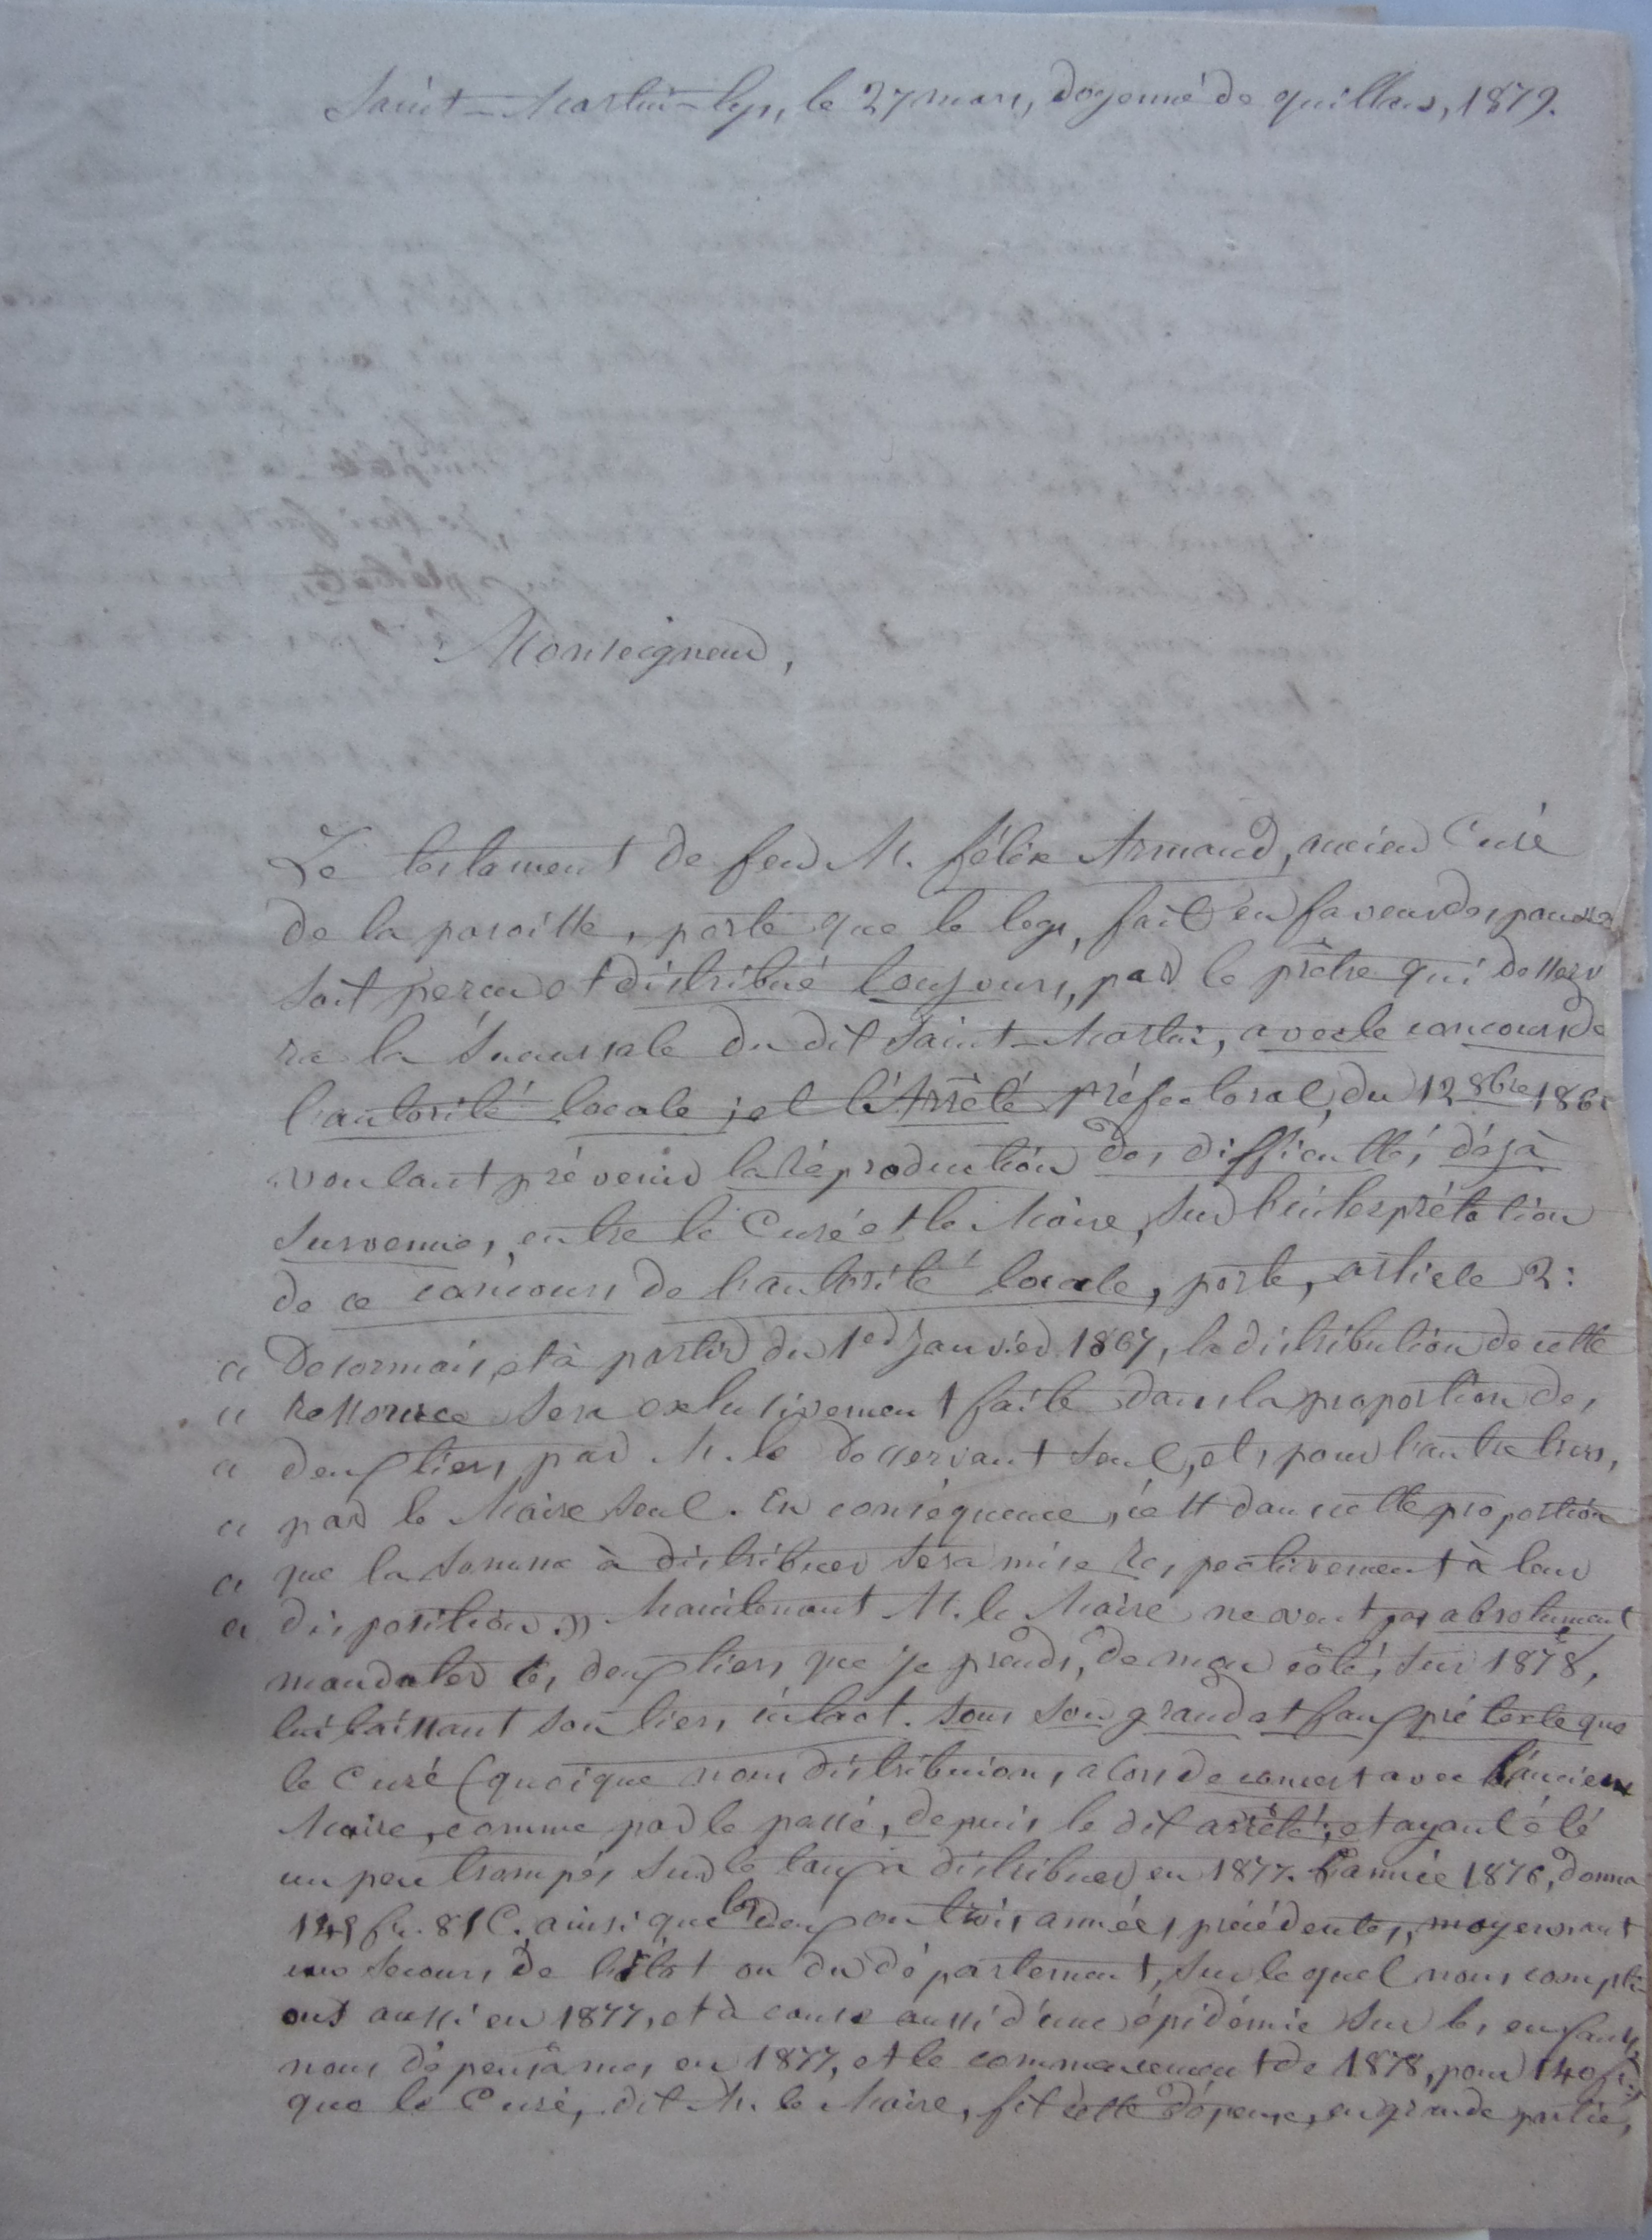 Saint-Martin-lys, le 27 mars, doyenné de quillan, 1879.
Monseigneur,
Le testament de feu M. félix Armand, ancien Curé
de la paroisse, porte que le legs, fait en faveur des pauvres
soit perçu et distribué toujours, par le prêtre qui desserv
ra la succursale du dit Saint-Martin, avec le concours de
l'autorité locale; et l'Arrêté préfectoral, du 12 8bre 186
voulant prévenir la réproduction des difficultés déjà
survenues, entre le Curé et le Maire, sur l'interprétation
de ce concours de l'autorité locale, porte, article 2:
« Desormais, et à partir du 1er Janvier 1867, la distribution de cette
« ressource sera exclusivement faite dans la proportion des
« deux tiers, par M. le desservant seul, et, pour l'autre tiers,
« par le Maire seul. En conséquence, c'est dans cette proportion
« que la somme à distribuer sera mise respectivement à leur
« disposition.» Maintenant M. le Maire ne veut pas absolument
mandater les deux tiers, que je prends, de mon côté, sur 1878,
lui laissant son tiers intact. sous son grand et faux prétexte que
le Curé (quoique nous distribuions, alors de concert avec l'ancien
Maire, comme par le passé, depuis le dit arrêté; et ayant été
un peu trompés sur le taux à distribuer en 1877. L'année 1876, donna
149 fr. 81 C. ainsi que les deux ou trois années précédentes, moyennant
un secours de l'état ou du département, sur lequel nous compti-
ons aussi en 1877, et à cause aussi d'une épidémie sur les enfants,
nous dépensâmes en 1877, et le commencement de 1878, pour 140 fr.)
que le Curé, dit M. le Maire, fit cette dépense, en grande partie,